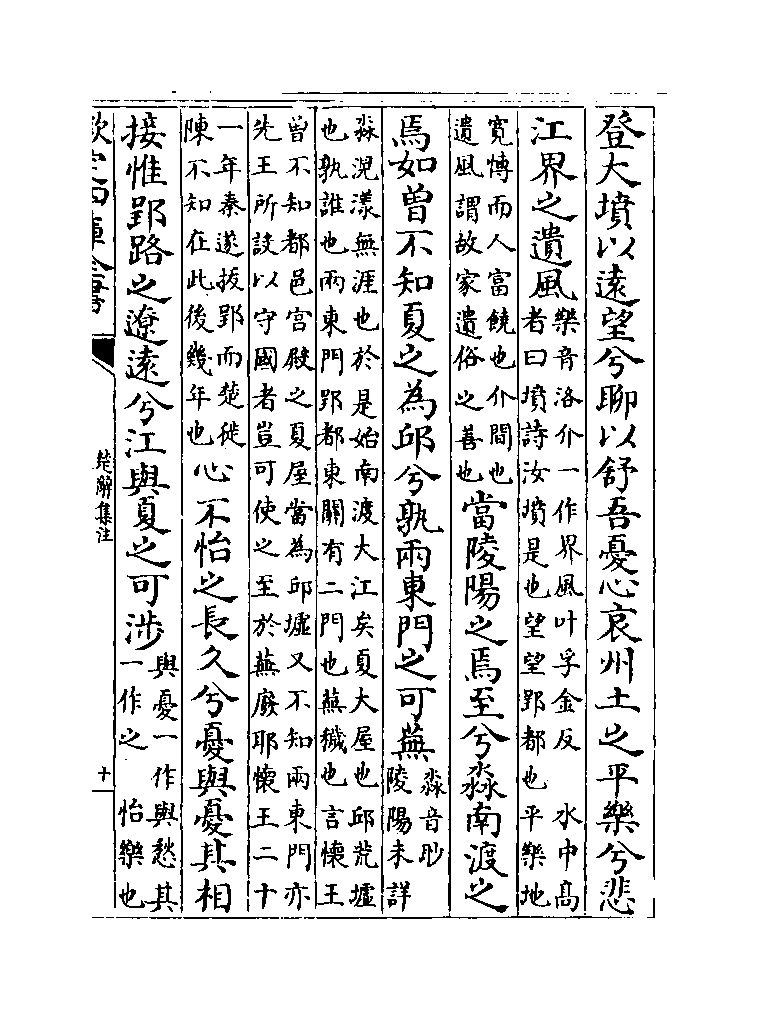 登大墳以遠望兮聊以舒吾憂心哀州土之平樂兮悲
江界之遺風
樂音洛介一作界風叶孚金反 水中高
者曰墳詩汝墳是也望望郢都也平樂地
寛愽而人富饒也介間也
遺風謂故家遺俗之善也
當陵陽之焉至兮淼南渡之
焉如曾不知夏之為邱兮孰兩東門之可蕪
淼音眇
陵陽未詳
淼滉漾無涯也於是始南渡大江矣夏大屋也邱荒墟
也孰誰也兩東門郢都東關有二門也蕪穢也言懷王
曾不知都邑宫殿之夏屋當為邱墟又不知兩東門亦
先王所設以守國者豈可使之至於蕪廢耶懷王二十
一年秦遂拔郢而楚徙
陳不知在此後幾年也
心不怡之長久兮憂與憂其相
接惟郢路之遼遠兮江與夏之可涉
與憂一作與愁其
一作之 怡樂也
欽定四庫全書
楚辭集注
十